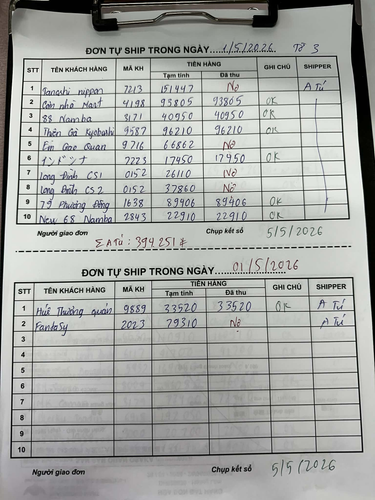 ĐƠN TỰ SHIP TRONG NGÀY 1/5/2026 Tờ 3
STT TÊN KHÁCH HÀNG MÃ KH TIỀN HÀNG GHI CHÚ SHIPPER
Tạm tính Đã thu
1 nippon 7213 151447 Nợ A Tú
2 Căn nhà 4198 93805 93805 OK
3 88 Namba 8171 40950 40950 OK
4 Thôn Gái Kyobashi 9587 96210 96210 OK
5 Em Gao Quan 9716 66862 Nợ
6 インドシナ 7223 17450 17450 OK
7 Long Đỉnh CS1 0152 26110 Nợ
8 Long Đỉnh CS2 0152 37860 Nợ
9 79 Phương Đông 1638 89406 89406 OK
10 New 68 Namba 2843 22910 22910 OK
Người giao đơn Chụp kết số 5/5/2026
Σ A Tú : 394251 ¥
ĐƠN TỰ SHIP TRONG NGÀY 01/5/2026
STT TÊN KHÁCH HÀNG MÃ KH TIỀN HÀNG GHI CHÚ SHIPPER
Tạm tính Đã thu
1 Huế Thương quán 9889 33520 33520 OK A Tú
2 Fantasy 2023 79310 Nợ A Tú
3
4
5
6
7
8
9
10
Người giao đơn Chụp kết số 5/5/2026